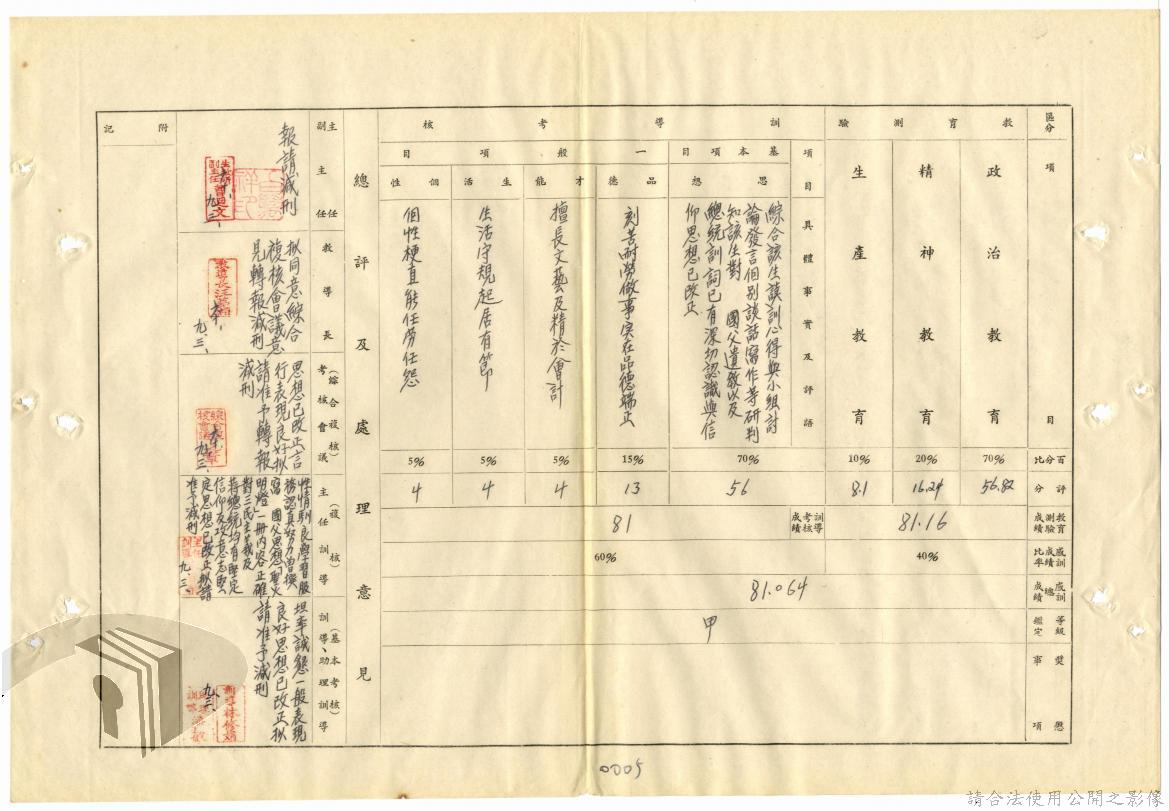 區分
項
目
百分比
評分
教育測驗成績
感訓成績比率
感訓總成績
等級鑑定
獎懲事項
教育測驗
政治教育
70%
56.82
精神教育
20%
16.24
生產教育
10%
8.1
81.16
40%
訓導考核
項目
具體事實及評語
訓導考核成績
基本項目
思想
綜合該生談訓心得與小組討
論發言個別談話寫作等研判
知該生對 國父遺教以及
總統訓詞已有深切認識與信
仰思想已改正
70%
56
一般項目
品德
刻苦耐勞做事实在品德端正
15%
13
才能
擅長文藝及精於會計
5%
4
生活
生活守規起居有節
5%
4
個性
個性梗直能任勞任怨
5%
4
81
60%
81.064
甲
總評及處理意見
主任
副主任
報請減刑
九、三、
教導長
拟同意綜合
複核會議意
見轉報減刑
九、三、
(綜合複核)
考核會議
思想已改正言
行表現良好拟
請准予轉報
減刑
九、三、
(複核)
主任訓導
性情馴良學習服
務認真努力曾撰
寫 國父思想向聖火
明燈一冊內容正確
對三民主義及
蔣總統均有堅定
信仰反攻意志堅
定思想已改正拟請
准予減刑
九、三、
(基本考核)
訓導、助理訓導
坦率誠懇一般表現
良好思想已改正拟
請准予減刑
九、三、
附記
0005
請合法使用公開之影像